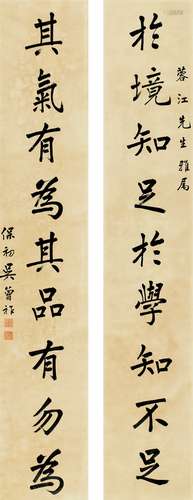 蓉江先生雅属
於境知足於學知不足
其氣有為其品有勿為
保初吳曾祚